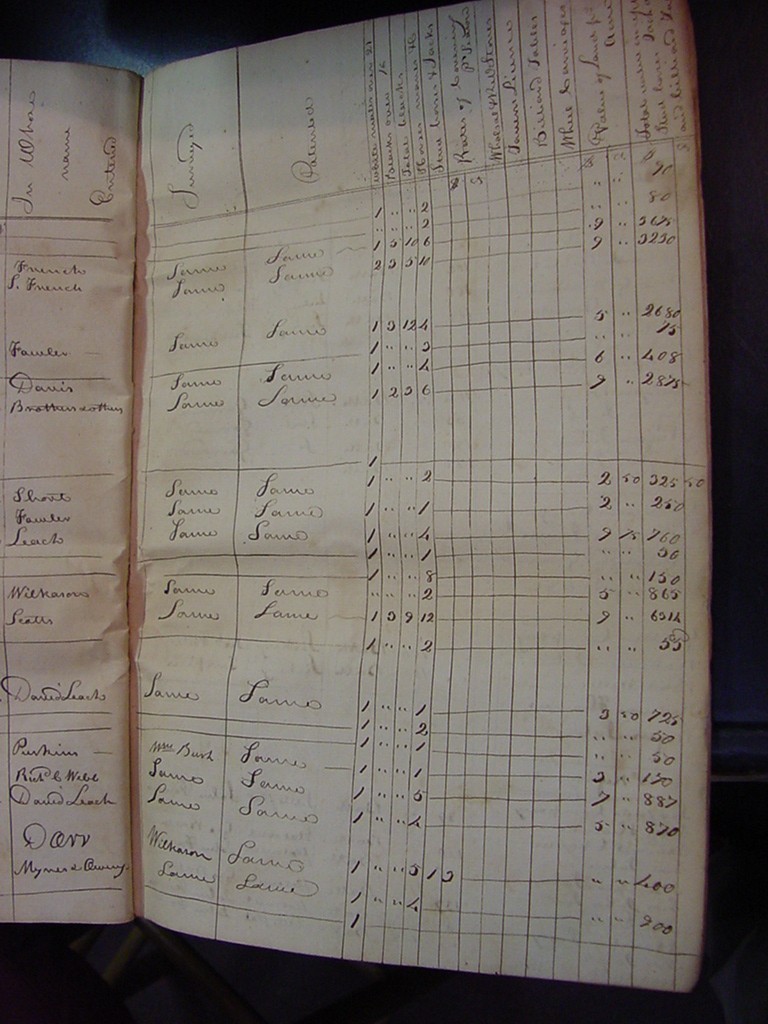 In Whose name Entered
Surveyed
Patented
White males over 21
Blacks over 16
Total blacks
Horses mares &c
Stud horses & Jacks
Rates of Covering
Tavern License
Billiard Tables
Wheel Carriages
Value of Land pr Acre
1 " " 2 " " 90
" " " 2 " " 80
French Same Same 1 5 10 6 9 " 3675
S. French Same Same 2 3 5 10 9 " 3230
Fowler Same Same 1 3 12 4 5 " 2680
1 " " 3 " 75
Davis Same Same 1 " " 4 6 " 408
Brothers & others Same Same 1 2 3 6 9 " 2875
1
Short Same Same 1 " " 2 2 50 325 50
Fowler Same Same 1 " " 1 2 " 250
Leach Same Same 1 " " 4 9 75 760
1 " " 1 " " 50
1 " " 8 " " 150
Wilkason Same Same " " " 2 5 " 865
Scotts Same Same 1 3 9 12 9 " 6514
1 " " 2 " " 55
David Leach Same Same 1 " " 1 3 50 725
1 " " 2 " " 50
Perkins Wm Bush Same 1 " " 1 " " 50
Richd C Webb Same Same 1 " " 1 3 " 150
David Leach Same Same 1 " " 5 7 " 887
Dorr Wilkason Same 1 " " 4 5 " 870
Myner & Owens Same Same 1 " " 5 1 3 " " 400
1 " " 4
1 " " 200